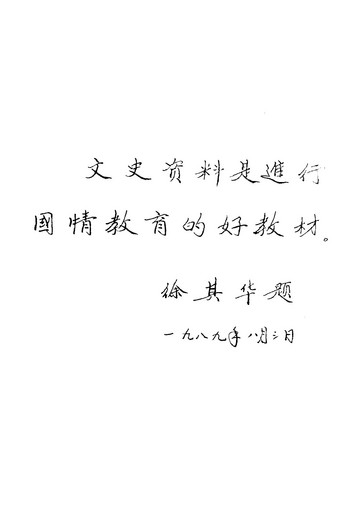 文史资料是進行
國情教育的好教材。
徐其华题
一九八九年八月三日